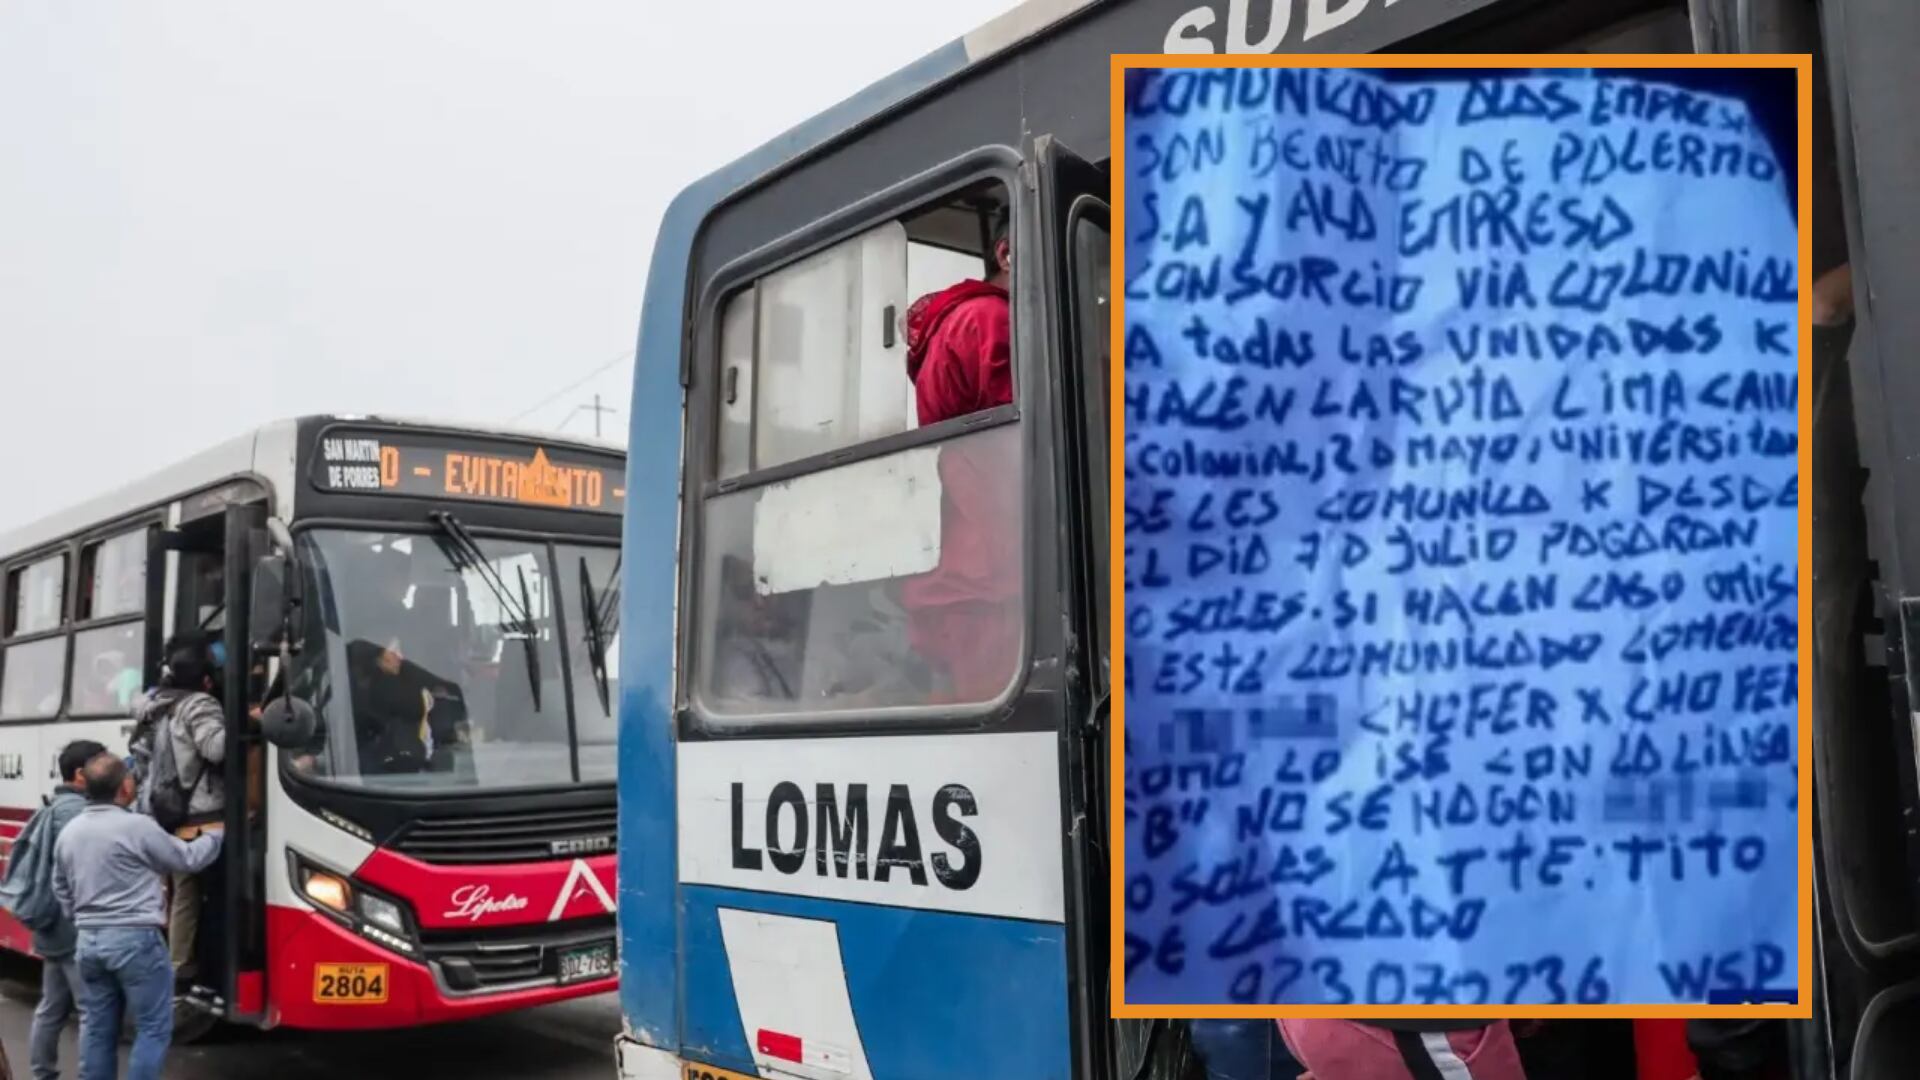 SUB
SAN MARTIN
DE PORRES
D - EVITAMIENTO -
LLA
Lipetsa
2804
LOMAS
COMUNICADO ALAS EMPRESA
SAN BENITO DE PALERMO
S.A Y ALA EMPRESA
CONSORCIO VIA COLONIAL
A todAS LAS UNIDADES K
HACEN LA RUTA LIMA CALL
Colonial, 2 D MAYO, UNIVERSITAR
SE LES COMUNICA K DESDE
EL DIA 7 D JULIO PAGARAN
0 SOLES. SI HACEN CASO OMIS
A ESTE COMUNICADO COMENZA
CHOFER X CHOFER
COMO LO ISE CON LA LINEA
"B" NO SE HAGAN
0 SOLES ATTE: TITO
DE CERCADO
WSP